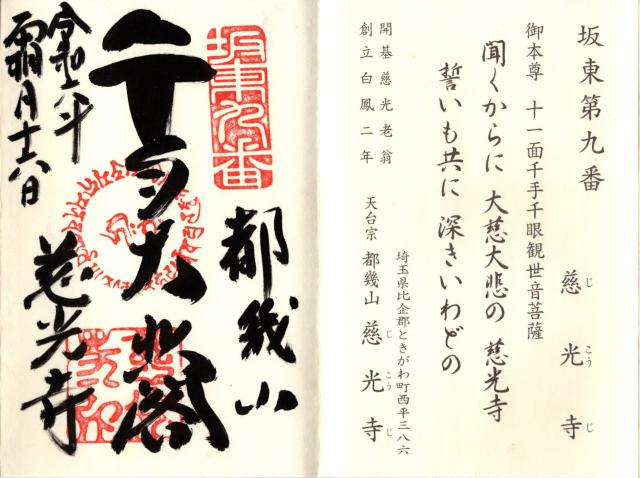 坂東第九番
慈光寺
じこうじ
御本尊 十一面千手千眼観世音菩薩
聞くからに 大慈大悲の 慈光寺
誓いも共に 深きいわどの
開基慈光老翁
創立白鳳二年
埼玉県比企郡ときがわ町西平三八六
天台宗 都幾山 慈光寺
じこうじ
坂東九番
都幾山
千手大悲閣
慈光寺
令和六年
霜月十六日